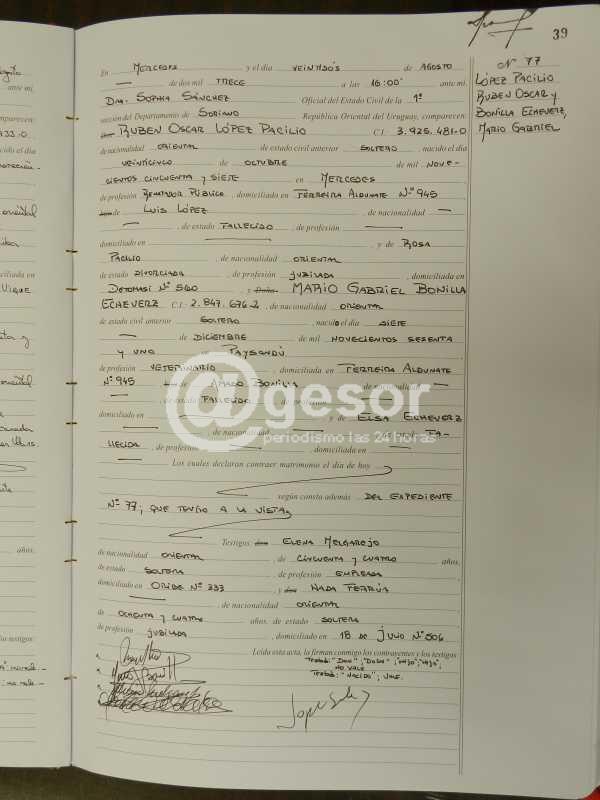 39
Nº 77
LÓPEZ PACILIO
RUBEN OSCAR y
BONILLA ECHEVERZ,
MARIO GABRIEL
En MERCEDES y el día VEINTIDÓS de AGOSTO
de dos mil TRECE a las 16:00' ante mí.
Dra. SOPHIA SÁNCHEZ Oficial del Estado Civil de la 1ª
sección del Departamento de SORIANO República Oriental del Uruguay, comparecen:
RUBEN OSCAR LÓPEZ PACILIO C.I: 3.925.481-0
de nacionalidad ORIENTAL de estado civil anterior SOLTERO, nacido el día
VEINTICINCO de OCTUBRE de mil NOVE-
CIENTOS CINCUENTA y SIETE en MERCEDES
de profesión REMATADOR PÚBLICO, domiciliado en FERREIRA ALDUNATE Nº 945
de LUIS LÓPEZ, de nacionalidad —
—, de estado FALLECIDO, de profesión —
domiciliado en — y de ROSA
PACILIO de nacionalidad ORIENTAL
de estado DIVORCIADA, de profesión JUBILADA, domiciliada en
DETOMASI Nº 560 y Doña MARIO GABRIEL BONILLA
ECHEVERZ C.I: 2.847.676-2, de nacionalidad ORIENTAL
de estado civil anterior SOLTERO, nacido el día SIETE
— de DICIEMBRE de mil NOVECIENTOS SESENTA
y UNO en PAYSANDÚ
de profesión VETERINARIO, domiciliada en FERREIRA ALDUNATE
Nº 945 de AMADO BONILLA de nacionalidad —
—, de estado FALLECIDO de profesión —
domiciliado en — y de ELSA ECHEVERZ
—, de nacionalidad — de estado FA-
LLECIDA, de profesión —, domiciliada en
—
@gesor
periodismo las 24 horas
Los cuales declaran contraer matrimonio el día de hoy
según consta además DEL EXPEDIENTE
Nº 77, QUE TENGO A LA VISTA
Testigos: don ELENA MELGAREJO
de nacionalidad ORIENTAL de CINCUENTA y CUATRO años.
de estado SOLTERA de profesión EMPLEADA
domiciliado en ORIBE Nº 333 y don NADA FERRÚA
—, de nacionalidad ORIENTAL
de OCHENTA y CUATRO años. de estado SOLTERA
de profesión JUBILADA, domiciliado en 18 DE JULIO Nº 506
Leída esta acta, la firman conmigo los contrayentes y los testigos
NO VALE
TESTADO: "NACIDO", VALE.